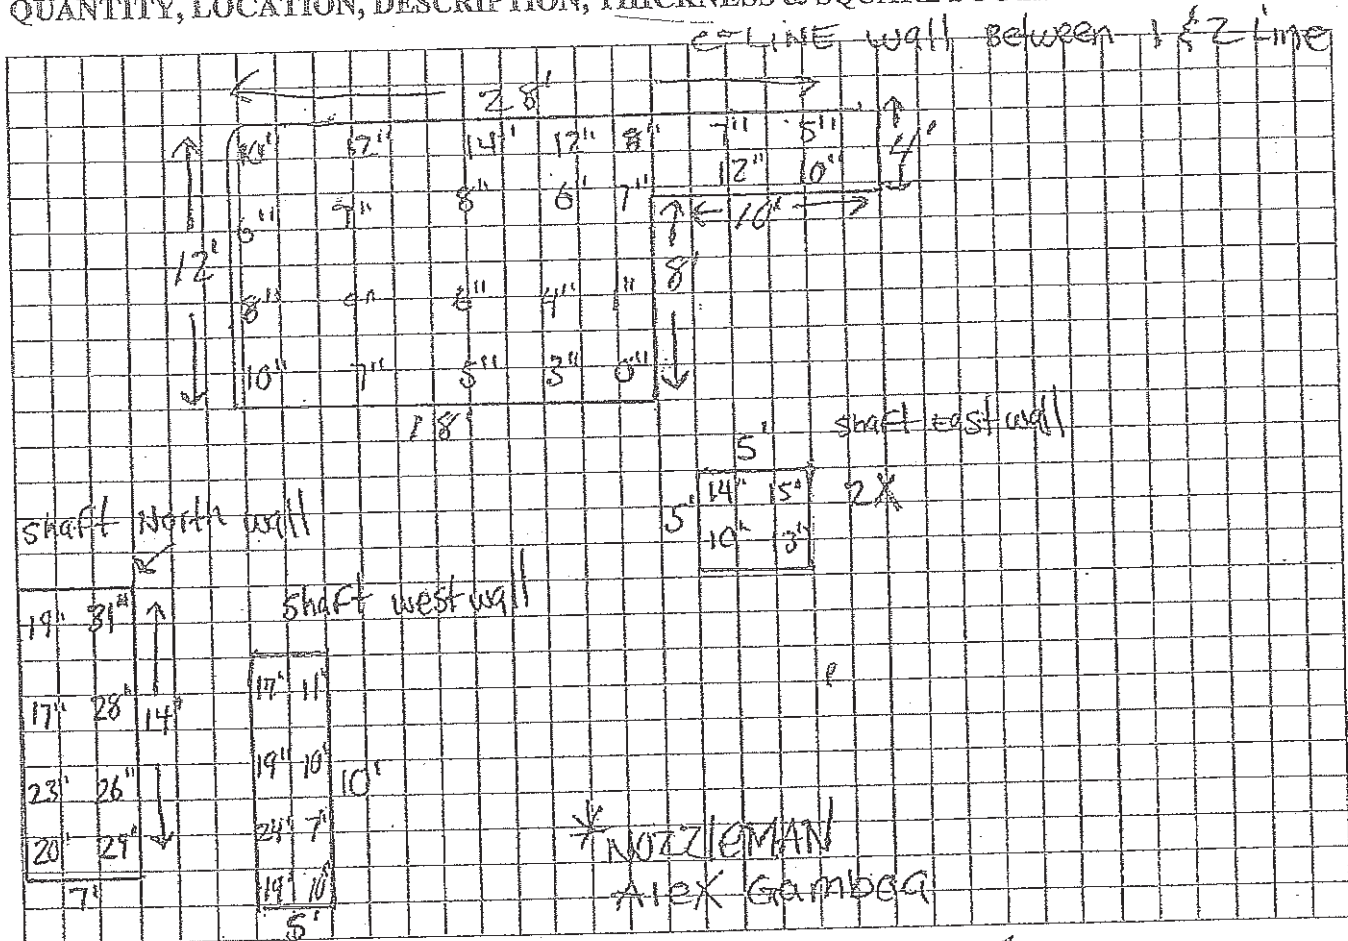 QUANTITY, LOCATION, DESCRIPTION, THICKNESS & SQUARE
e-LINE wall Between 1 & 2 Line
28'
10" 12" 14" 12" 8" 7" 5"
4'
12" 10"
6" 9" 8" 6" 7"
10'
12'
8'
8" 9" 6" 4" 1"
10" 7" 5" 3" 0"
18'
shaft East wall
5'
14" 15" 2X
5'
10" 3"
shaft North wall
shaft west wall
19" 31"
17" 11"
17" 28" 14'
19" 10"
10'
23" 26"
24" 7"
20" 29"
19" 10"
7'
5'
* NOZZleMAN
Alex Gamboa